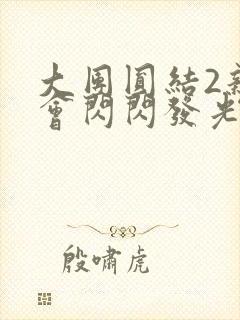 大團圓結2新
會閃閃發光
殷嘯虎